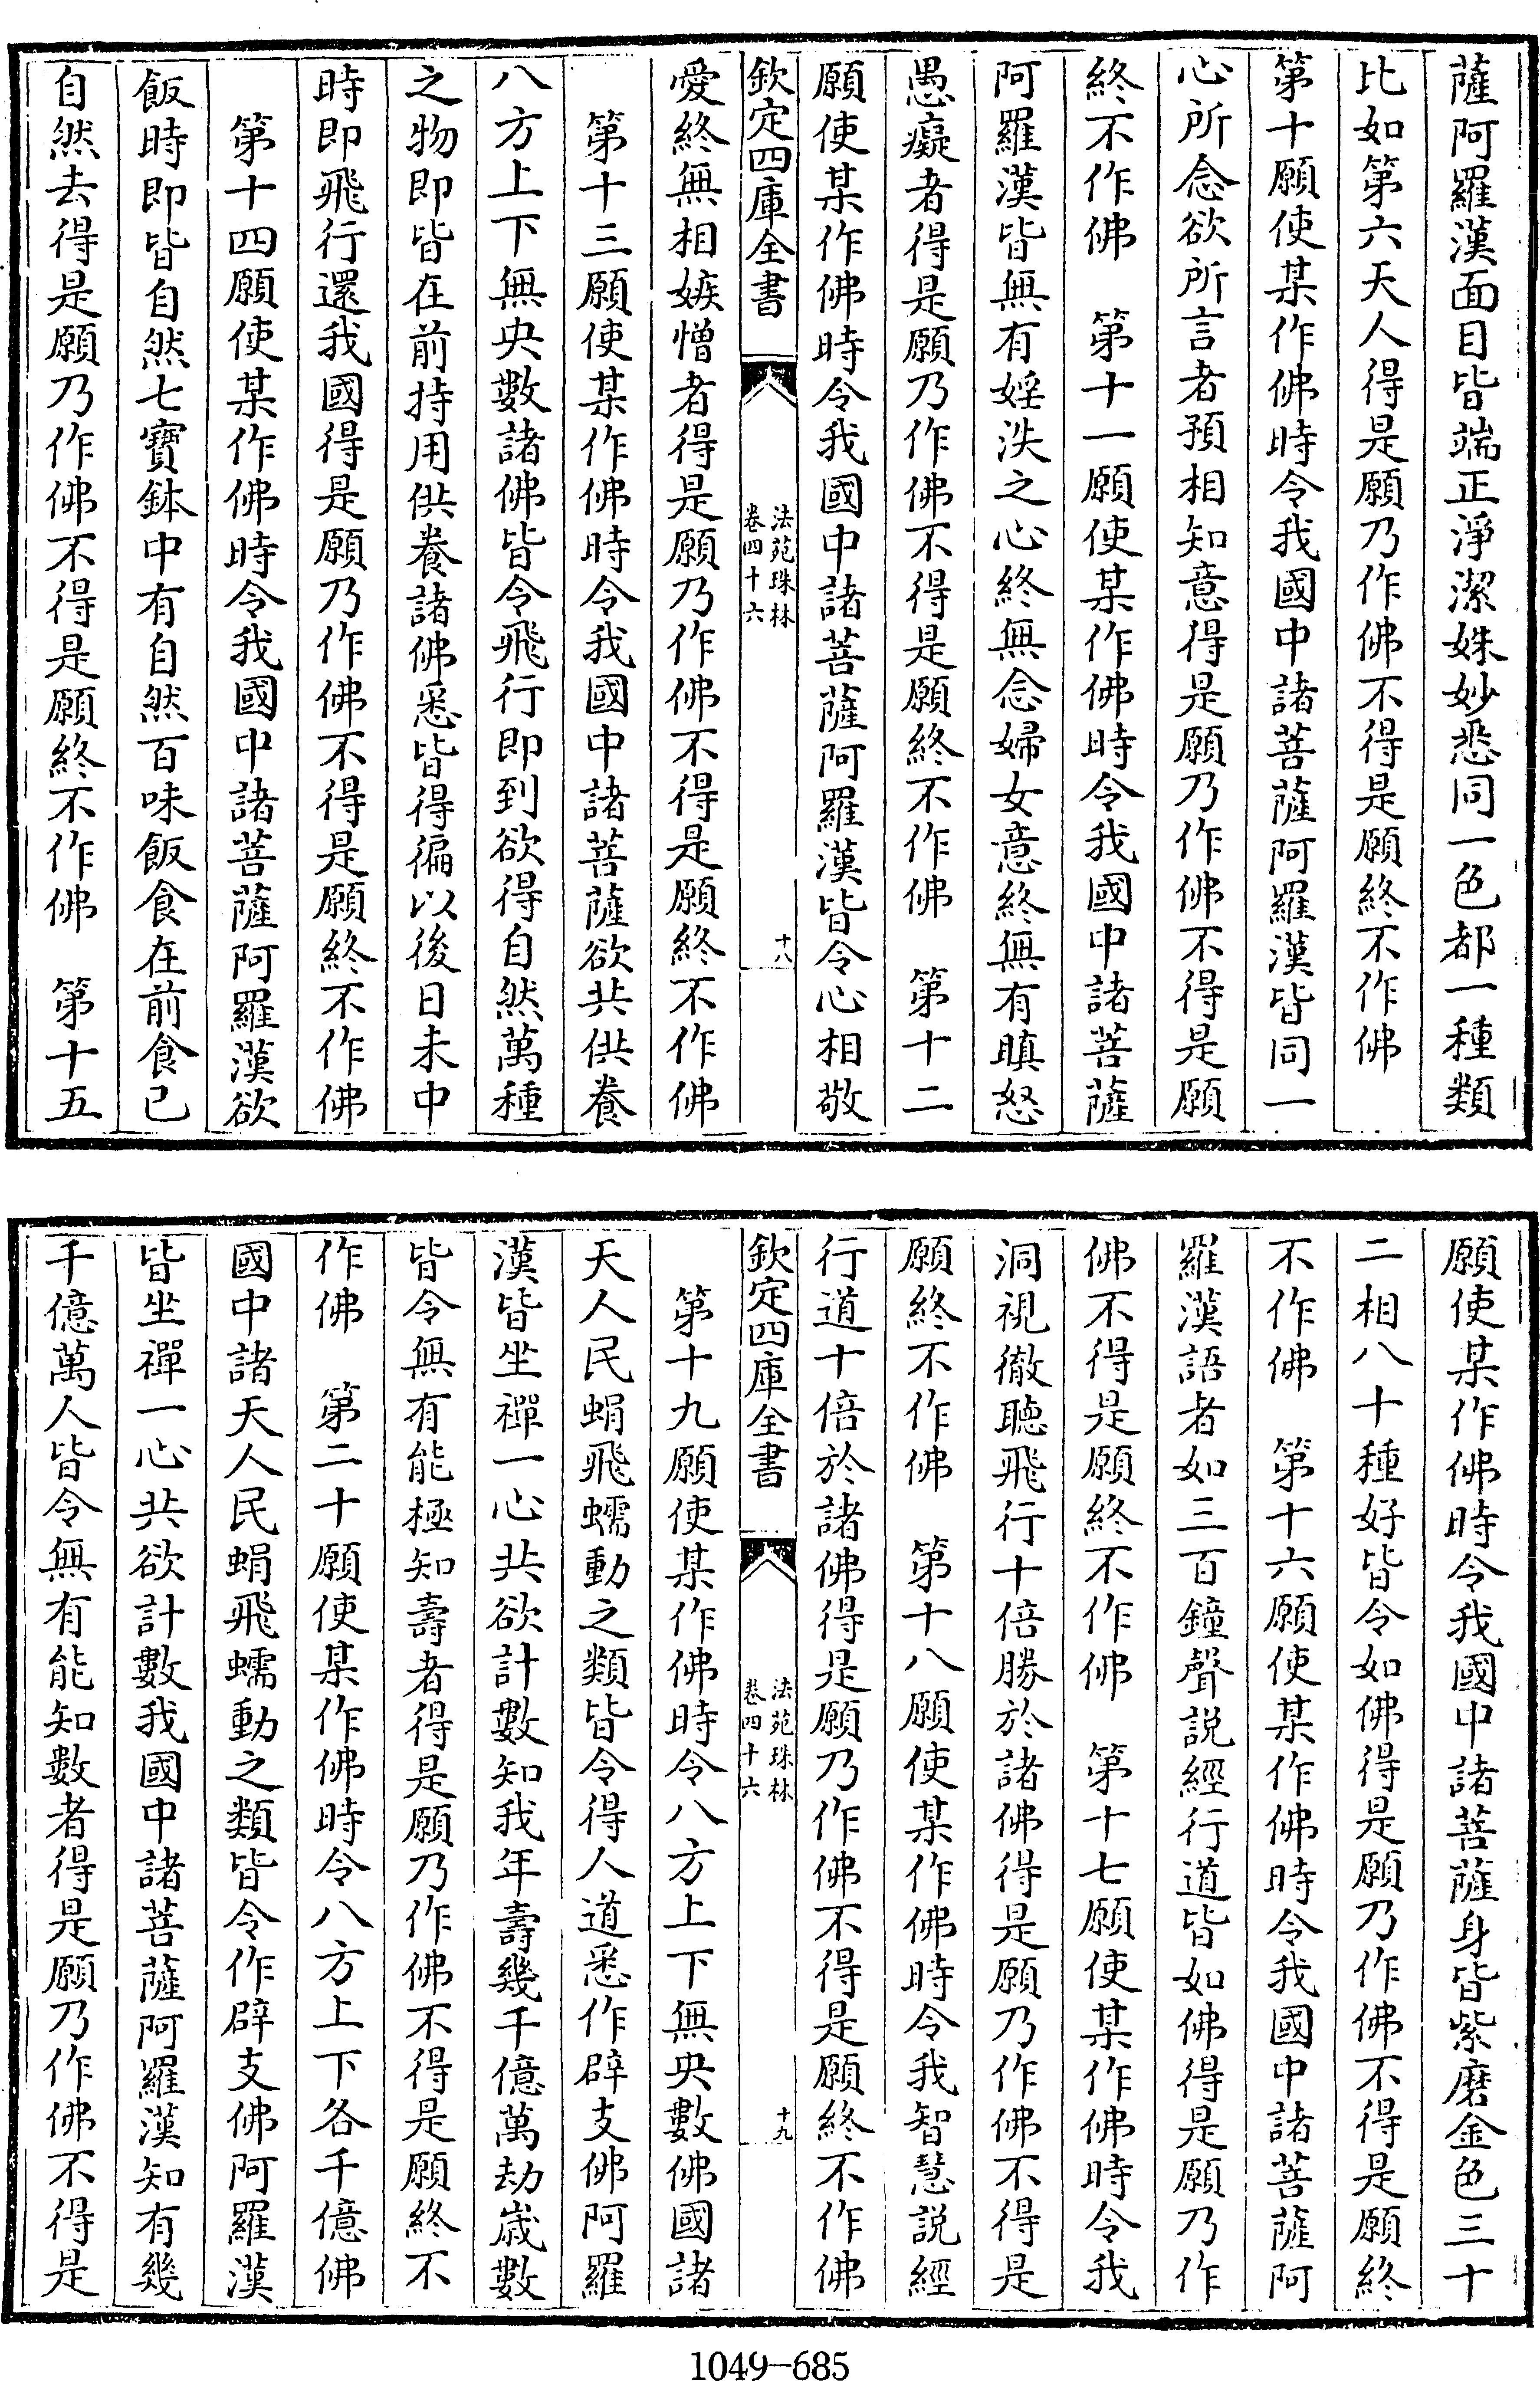 薩阿羅漢面目皆端正淨潔姝妙悉同一色都一種類
比如第六天人得是願乃作佛不得是願終不作佛
第十願使某作佛時令我國中諸菩薩阿羅漢皆同一
心所念欲所言者預相知意得是願乃作佛不得是願
終不作佛　第十一願使某作佛時令我國中諸菩薩
阿羅漢皆無有婬泆之心終無念婦女意終無有瞋怒
愚癡者得是願乃作佛不得是願終不作佛　第十二
願使某作佛時令我國中諸菩薩阿羅漢皆令心相敬
欽定四庫全書
法苑珠林
卷四十六
十八
愛終無相嫉憎者得是願乃作佛不得是願終不作佛
第十三願使某作佛時令我國中諸菩薩欲共供養
八方上下無央數諸佛皆令飛行即到欲得自然萬種
之物即皆在前持用供養諸佛悉皆得徧以後日未中
時即飛行還我國得是願乃作佛不得是願終不作佛
第十四願使某作佛時令我國中諸菩薩阿羅漢欲
飯時即皆自然七寶鉢中有自然百味飯食在前食已
自然去得是願乃作佛不得是願終不作佛　第十五
願使某作佛時令我國中諸菩薩身皆紫磨金色三十
二相八十種好皆令如佛得是願乃作佛不得是願終
不作佛　第十六願使某作佛時令我國中諸菩薩阿
羅漢語者如三百鐘聲説經行道皆如佛得是願乃作
佛不得是願終不作佛　第十七願使某作佛時令我
洞視徹聽飛行十倍勝於諸佛得是願乃作佛不得是
願終不作佛　第十八願使某作佛時令我智慧説經
行道十倍於諸佛得是願乃作佛不得是願終不作佛
欽定四庫全書
法苑珠林
卷四十六
十九
第十九願使某作佛時令八方上下無央數佛國諸
天人民蜎飛蠕動之類皆令得人道悉作辟支佛阿羅
漢皆坐禪一心共欲計數知我年壽幾千億萬劫歲數
皆令無有能極知壽者得是願乃作佛不得是願終不
作佛　第二十願使某作佛時令八方上下各千億佛
國中諸天人民蜎飛蠕動之類皆令作辟支佛阿羅漢
皆坐禪一心共欲計數我國中諸菩薩阿羅漢知有幾
千億萬人皆令無有能知數者得是願乃作佛不得是
1049-685